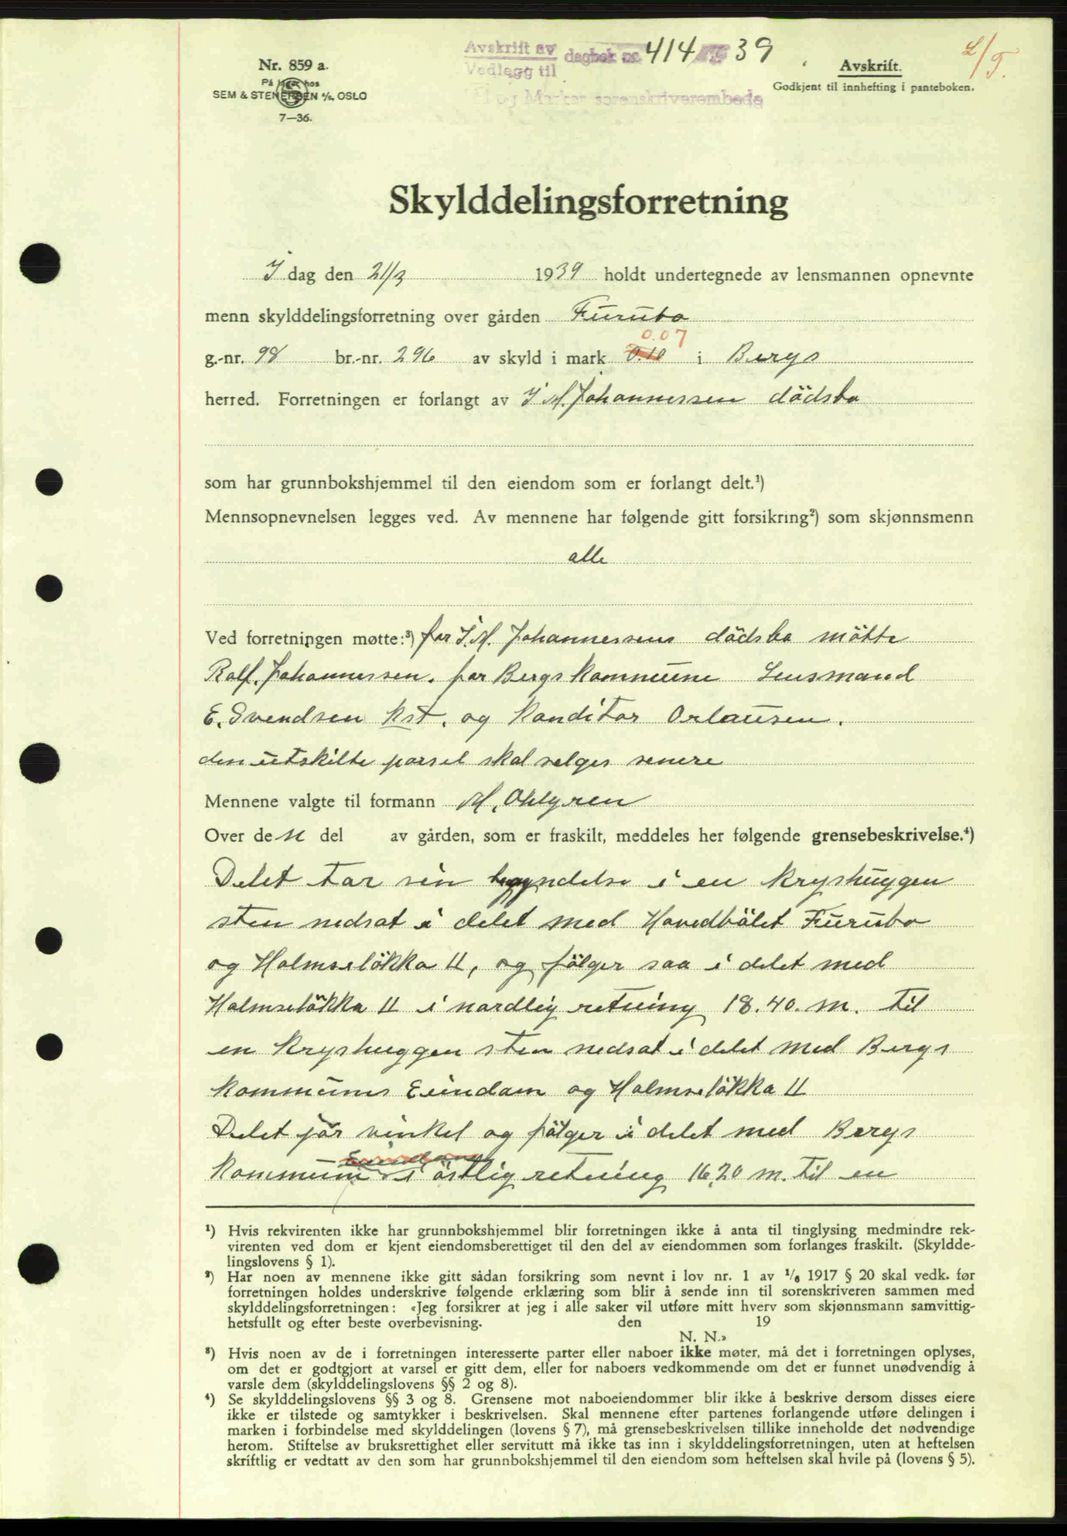 Nr. 859 a.
På lager hos
SEM & STENERSEN A/S, OSLO
7—36.
Avskrift av dagbok nr. 414 1939
Vedlegg til
og Marker sorenskriverembede
Avskrift.
Godkjent til innhefting i panteboken.
Skylddelingsforretning
I dag den 21/3 1939 holdt undertegnede av lensmannen opnevnte
menn skylddelingsforretning over gården Furubo
0.07
g.-nr. 98 br.-nr. 296 av skyld i mark 0.10 i Bergs
herred. Forretningen er forlangt av I. M. Johannessen dödsbo
som har grunnbokshjemmel til den eiendom som er forlangt delt.¹)
Mennsopnevnelsen legges ved. Av mennene har følgende gitt forsikring²) som skjønnsmenn
alle
Ved forretningen møtte:³) for I. M. Johannessens dödsbo mötte
Rolf. Johannessen. for Bergs Kommune Lensmand
E. Svendsen Kst. og Konditor Orlausen.
den utskilte parsel skal selges senere
Mennene valgte til formann M. Ohlgren
Over den del av gården, som er fraskilt, meddeles her følgende grensebeskrivelse.⁴)
Delet tar sin begyndelse i en Kryshuggen
sten nedsat i delet med Hovedbölet Furubo
og Holmseløkka II, og fölger saa i delet med
Holmseløkka II i nordlig retning 18.40. m. til
en Kryshuggen sten nedsat i delet med Bergs
Kommunes Eiendom og Holmseløkka II
Delet gör vinkel og fölger i delet med Bergs
Eiendom
Kommun i östlig retning 16,20 m. til en
¹) Hvis rekvirenten ikke har grunnbokshjemmel blir forretningen ikke å anta til tinglysing medmindre rek-
virenten ved dom er kjent eiendomsberettiget til den del av eiendommen som forlanges fraskilt. (Skyldde-
lingslovens § 1).
²) Har noen av mennene ikke gitt sådan forsikring som nevnt i lov nr. 1 av 1/6 1917 § 20 skal vedk. før
forretningen holdes underskrive følgende erklæring som blir å sende inn til sorenskriveren sammen med
skylddelingsforretningen: «Jeg forsikrer at jeg i alle saker vil utføre mitt hverv som skjønnsmann samvittig-
hetsfullt og efter beste overbevisning. den 19
N. N.»
³) Hvis noen av de i forretningen interesserte parter eller naboer ikke møter, må det i forretningen oplyses,
om det er godtgjort at varsel er gitt dem, eller for naboers vedkommende om det er funnet unødvendig å
varsle dem (skylddelingslovens §§ 2 og 8).
⁴) Se skylddelingslovens §§ 3 og 8. Grensene mot naboeiendommer blir ikke å beskrive dersom disses eiere
ikke er tilstede og samtykker i beskrivelsen. Skal mennene efter partenes forlangende utføre delingen i
marken i forbindelse med skylddelingen (lovens § 7), må grensebeskrivelsen tillike inneholde det nødvendige
herom. Stiftelse av bruksrettighet eller servitutt må ikke tas inn i skylddelingsforretningen, uten at heftelsen
skriftlig er vedtatt av den som har grunnbokshjemmel til den eiendom som heftelsen skal hvile på (lovens § 5).